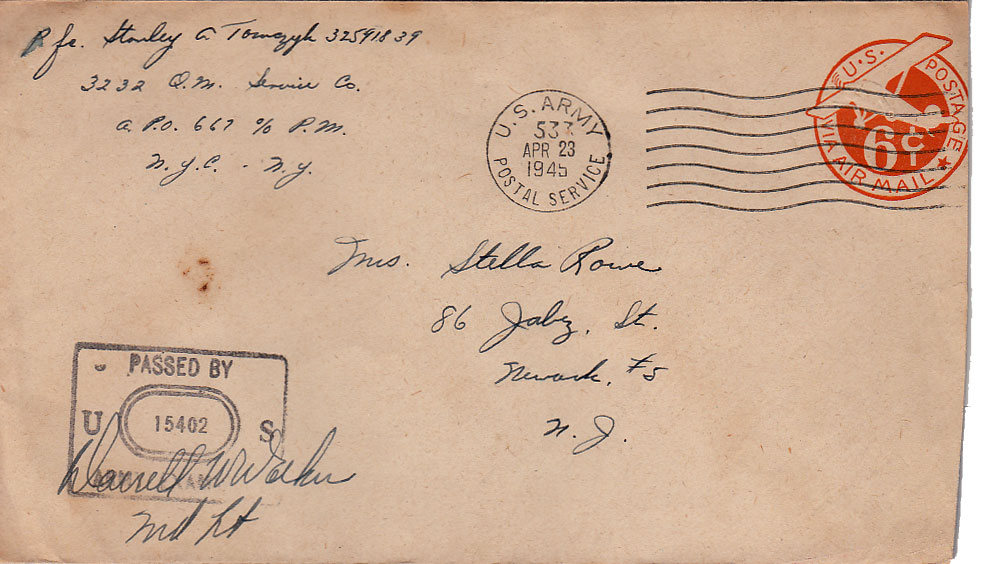 Pfc. Stanley A Tomczyk 32591839
3232 Q.M. Service Co.
A.P.O. 667 c/o P.M.
N.Y.C. - N.Y.
U.S. ARMY
POSTAL SERVICE
APR 23
1945
U.S. POSTAGE
6¢
VIA AIR MAIL
Mrs. Stella Rowe
86 Jabez. St.
Newark, #5
N.J.
PASSED BY
U S
15402
Darrell W Walker